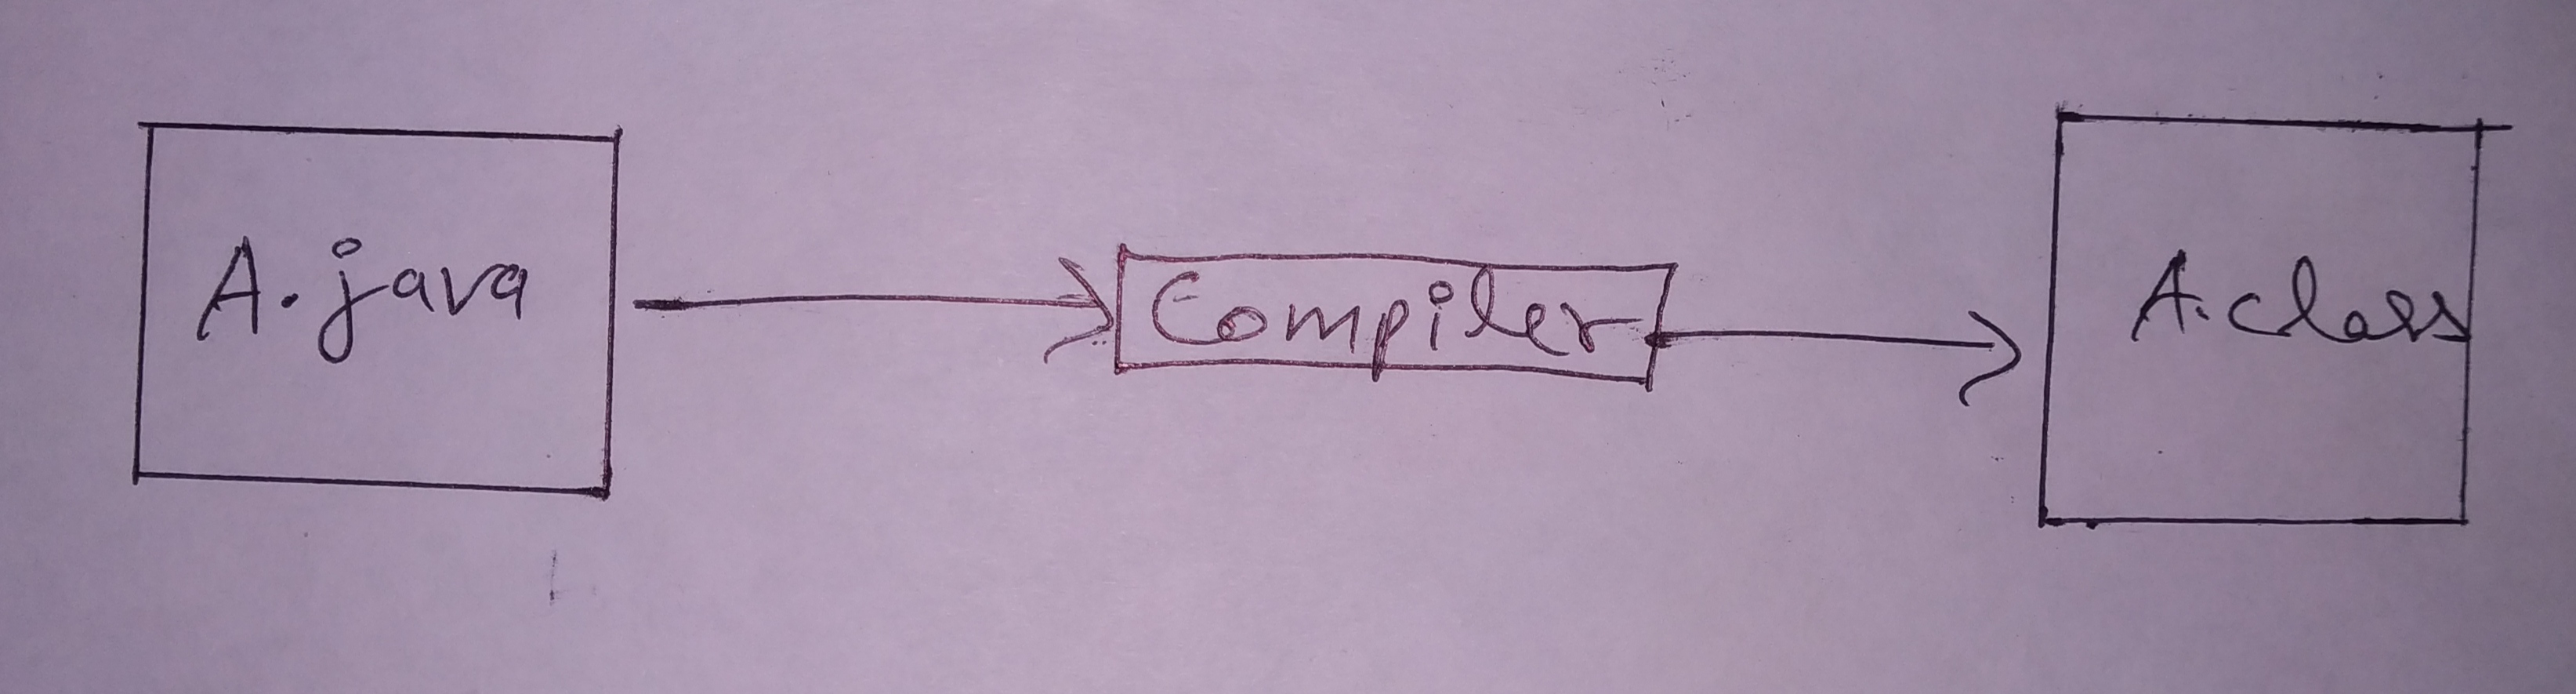 A.java
Compiler
A.class